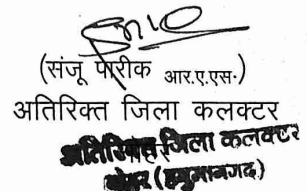 (संजू पारीक आर.ए.एस.)
अतिरिक्त जिला कलक्टर
अतिरिक्त जिला कलक्टर
(हनुमानगढ़)